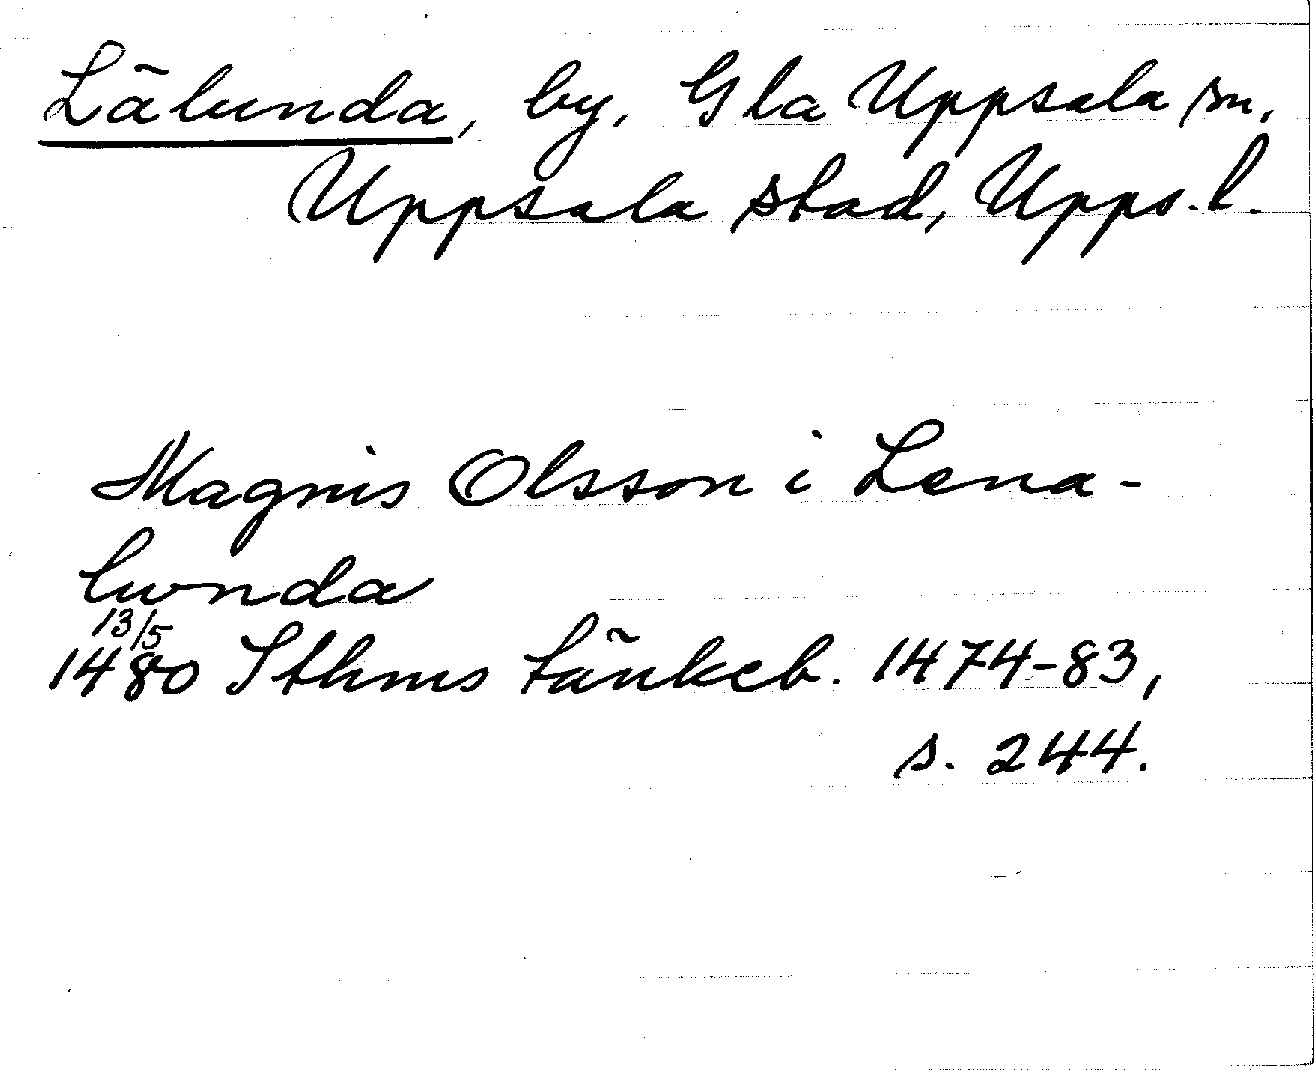 Lälunda, by, Gla Uppsala sn,
Uppsala stad, Upps. l.
Magnis Olsson i Lena-
lwnda
13/5
1480 Sthms tänkeb. 1474-83,
s. 244.